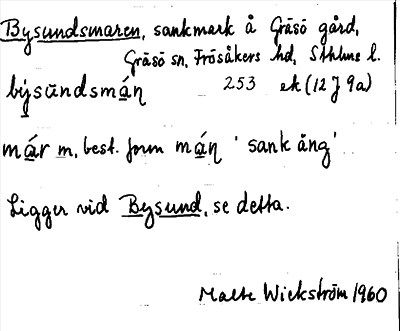 Bysundsmaren, sankmark å Gräsö gård,
Gräsö sn, Frösåkers hd, Sthlms l.
bý̱sùndsmá̱n 253 ek (12 J 9a)
má̱r m, best. form má̱n 'sank äng'
Ligger vid Bysund, se detta.
Malte Wickström 1960